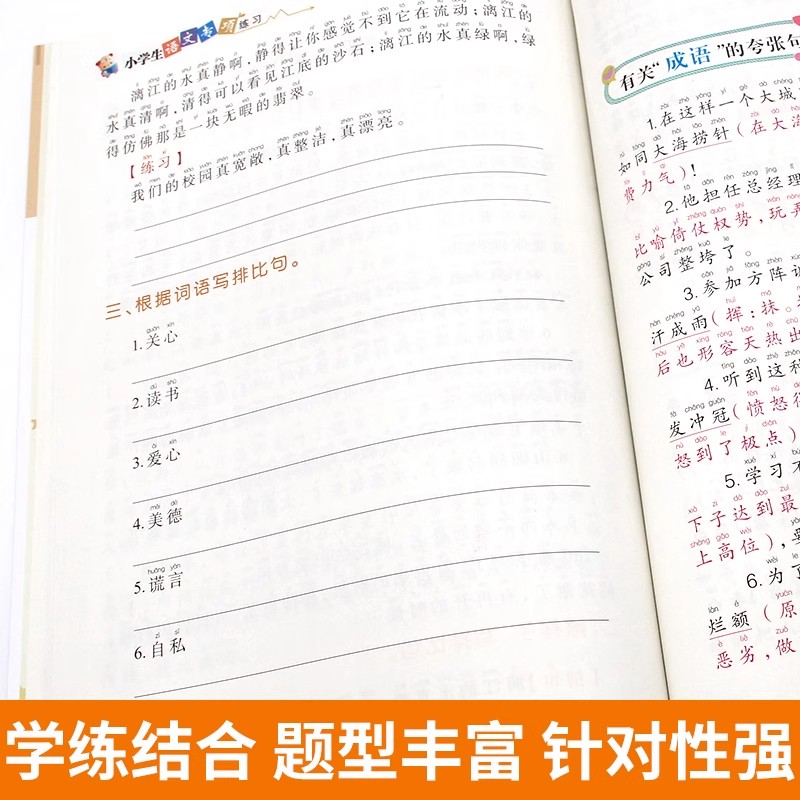 小学生语文专项练习
漓江的水真静啊，静得让你感觉不到它在流动；漓江的
水真清啊，清得可以看见江底的沙石；漓江的水真绿啊，绿
得仿佛那是一块无瑕的翡翠。
【练习】
我们的校园真宽敞，真整洁，真漂亮。
三、根据词语写排比句。
1.关心
2.读书
3.爱心
4.美德
5.谎言
6.自私
有关“成语”的夸张句
1.在这样一个大城
如同大海捞针（在大海
费力气）！
2.他担任总经理
比喻倚仗权势，玩弄
公司整垮了。
3.参加方阵训
汗成雨（挥：抹。
后也形容天热出
4.听到这种
发冲冠（愤怒得
怒到了极点）
5.学习不
下子达到最
上高位），
6.为了
烂额（原
恶劣，做
学练结合 题型丰富 针对性强